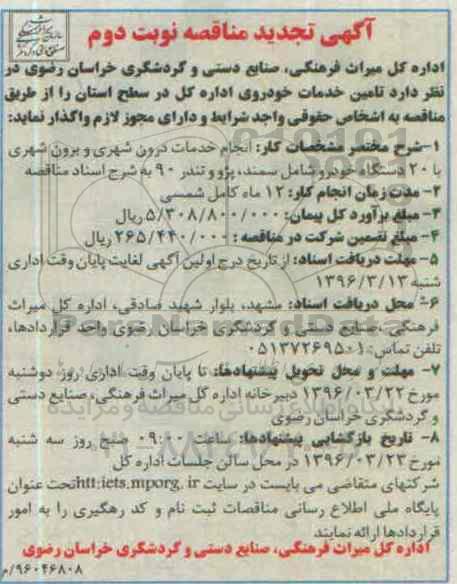 آگهی تجدید مناقصه نوبت دوم
اداره کل میراث فرهنگی، صنایع دستی و گردشگری خراسان رضوی در
نظر دارد تامین خدمات خودروی اداره کل در سطح استان را از طریق
مناقصه به اشخاص حقوقی واجد شرایط و دارای مجوز لازم واگذار نماید:
۱-شرح مختصر مشخصات کار: انجام خدمات درون شهری و برون شهری
با ۲۰ دستگاه خودرو شامل سمند، پژو و تندر ۹۰ به شرح اسناد مناقصه
۲- مدت زمان انجام کار: ۱۲ ماه کامل شمسی
۳- مبلغ برآورد کل پیمان: ۵/۳۰۸/۸۰۰/۰۰۰ ریال
۴- مبلغ تضمین شرکت در مناقصه: ۲۶۵/۴۴۰/۰۰۰ ریال
۵- مهلت دریافت اسناد: از تاریخ درج اولین آگهی لغایت پایان وقت اداری
شنبه ۱۳۹۶/۳/۱۳
۶- محل دریافت اسناد: مشهد، بلوار شهید صادقی، اداره کل میراث
فرهنگی، صنایع دستی و گردشگری خراسان رضوی واحد قراردادها،
تلفن تماس: ۰۵۱۳۷۲۶۹۵۰۱
۷- مهلت و محل تحویل پیشنهادها: تا پایان وقت اداری روز دوشنبه
مورخ ۱۳۹۶/۰۳/۲۲ دبیرخانه اداره کل میراث فرهنگی، صنایع دستی
و گردشگری خراسان رضوی
۸- تاریخ بازگشایی پیشنهادها: ساعت ۰۹:۰۰ صبح روز سه شنبه
مورخ ۱۳۹۶/۰۳/۲۳ در محل سالن جلسات اداره کل
شرکتهای متقاضی می بایست در سایت htt:iets.mporg. ir تحت عنوان
پایگاه ملی اطلاع رسانی مناقصات ثبت نام و کد رهگیری را به امور
قراردادها ارائه نمایند
اداره کل میراث فرهنگی، صنایع دستی و گردشگری خراسان رضوی
۹۶۰۴۶۸۰۸/م